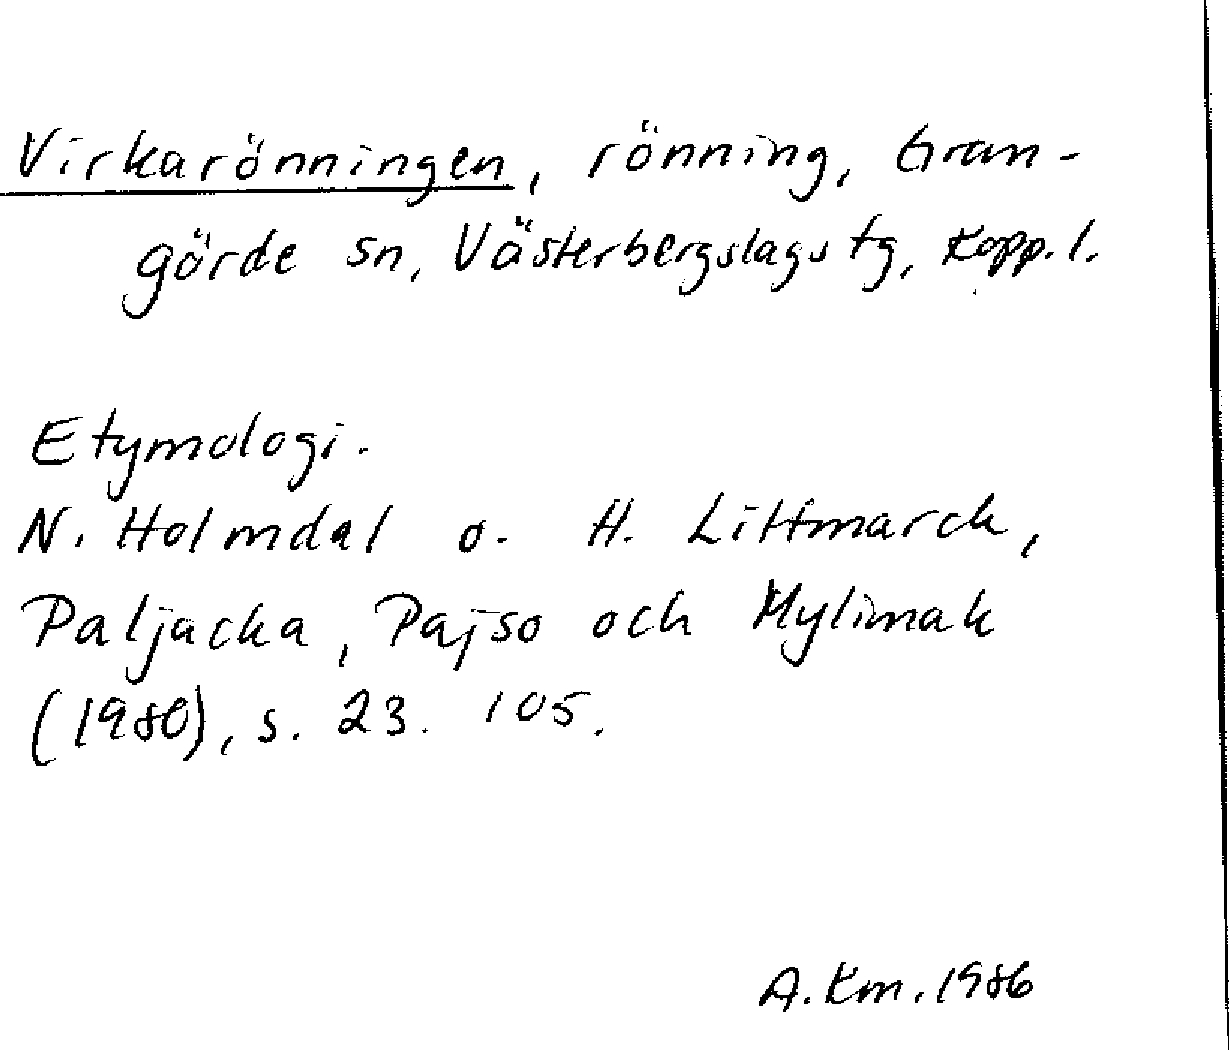 Virkarönningen, rönning, Gran-
görde sn, Västerbergslags tg, Kopp. l.
Etymologi.
N. Holmdal o. H. Littmarck,
Paljacka, Pajso och Mylimak
(1980), s. 23. 105.
A. Km. 1986